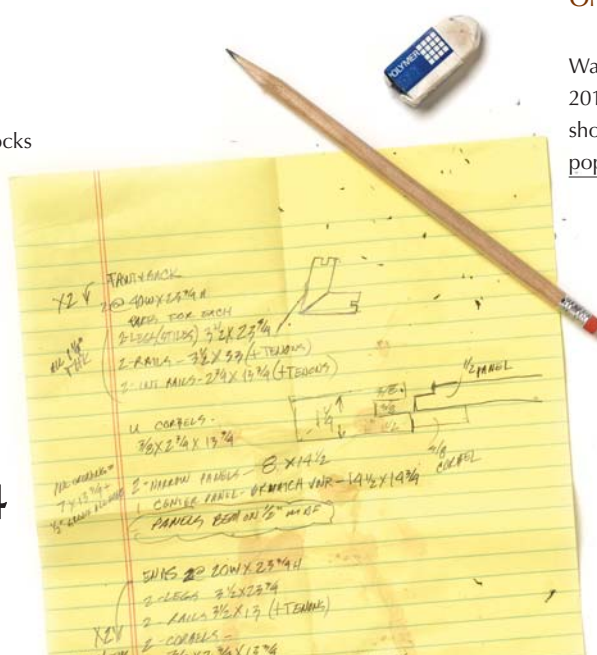 Wa
201
sho
pop
ocks
4
POLYMER
X2
FRONT/BACK
2@ 40W X 23 3/4 H
PARTS FOR EACH
2-LEGS (STILES) 3 1/2 X 23 3/4
2-RAILS - 3 1/2 X 33 (+TENONS)
2-INT RAILS - 2 3/4 X 13 3/4 (+TENONS)
ALL 1 1/4"
THK
4 CORBELS -
3/8 X 2 3/4 X 13 3/4
1 1/4
3/8
3/8
1/2
1/2 PANEL
3/8
CORBEL
2-NARROW PANELS - 8 X 14 1/2
1 CENTER PANEL - VNR - 14 1/2 X 14 3/4
PANELS ON 1/2" MDF
7 X 13 3/4 +
ENDS 2@ 20W X 23 3/4 H
2-LEGS 3 1/2 X 23 3/4
2-RAILS 3 1/2 X 13 (+TENONS)
X2
2-CORBELS -
3/8 X 2 3/4 X 13 3/4